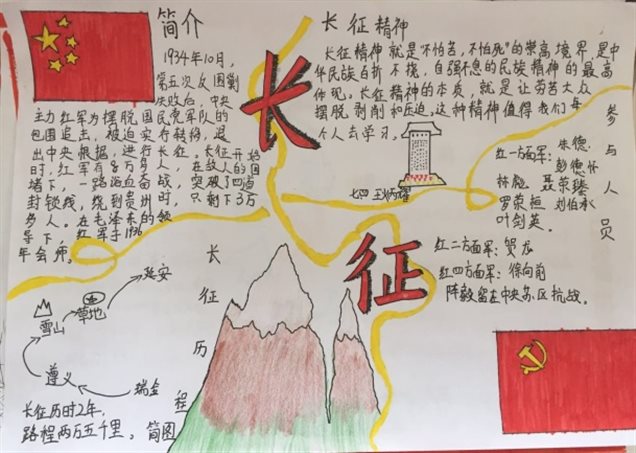 简介
1934年10月,
第五次反围剿
失败后,中央
主力红军为摆脱国民党军队的
包围追击,被迫实行转移,退
出中央根据,进行长征。长征开始
时,红军有8万多人,在敌人的围
堵下,一路浴血奋战,突破了四道
封锁线,绕到贵州时,只剩下3万
多人。在毛泽东的领
导下,红军于1936
年会师。
长征精神
长征精神就是"不怕苦,不怕死"的崇高境界是中
华民族百折不挠,自强不息的民族精神的最高
体现。长征精神的本质,就是让劳苦大众
摆脱剥削和压迫,这种精神值得我们每
个人去学习。
长
征
七四
参与人员
红一方面军:朱德.
彭德怀
林彪 聂荣臻
罗荣桓 刘伯承
叶剑英.
红二方面军:贺龙
红四方面军:徐向前
陈毅留在中央苏区抗战。
长征历程
延安
草地
雪山
遵义
瑞金
长征历时2年,
路程两万五千里。简图